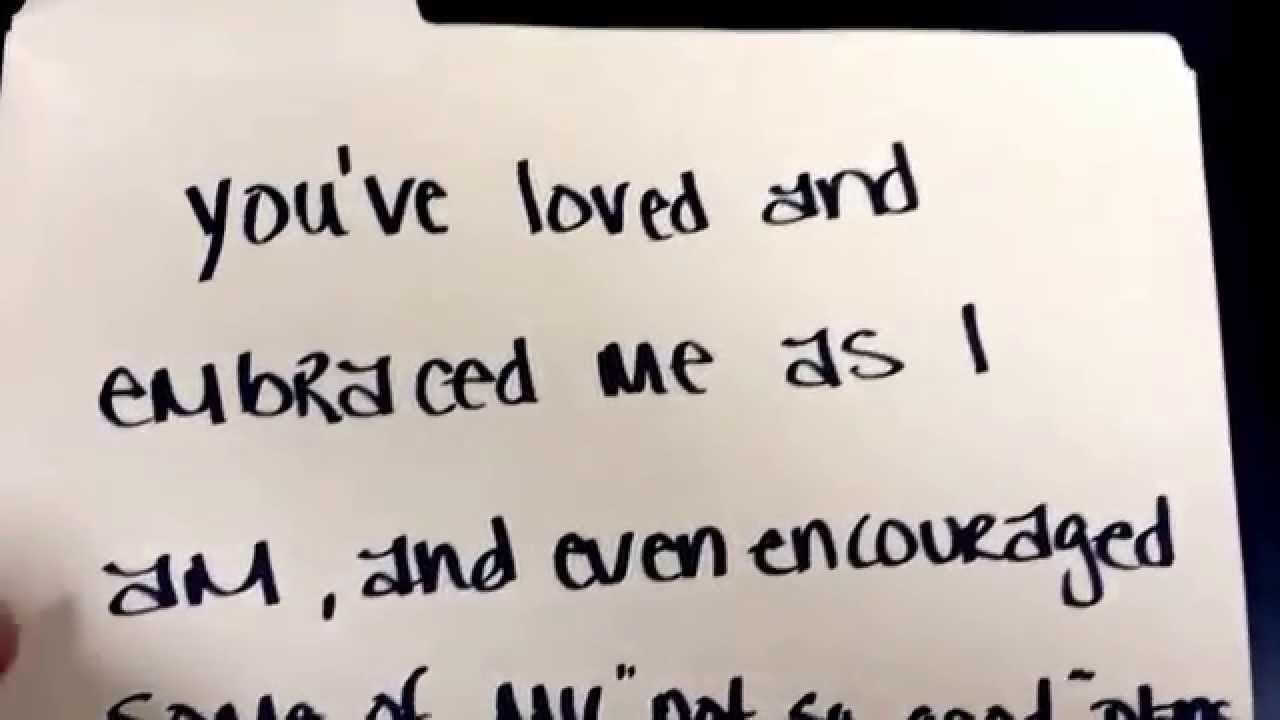 you've loved and
embraced me as I
am, and even encouraged
some of my "not so good"